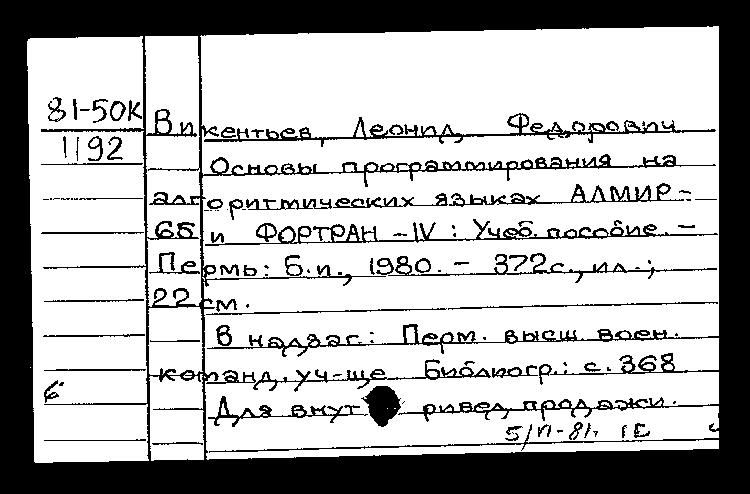 81-50К
1192
Викентьев, Леонид Федорович
Основы программирования на
алгоритмических языках АЛМИР-
65 и ФОРТРАН -IV : Учеб. пособие. -
Пермь: Б.и., 1980. - 372с., ил.;
22 см.
В надзаг.: Перм. высш. воен.
команд. уч-ще Библиогр.: с. 368
Для внут ривед. продажи.
5/VI-81г.